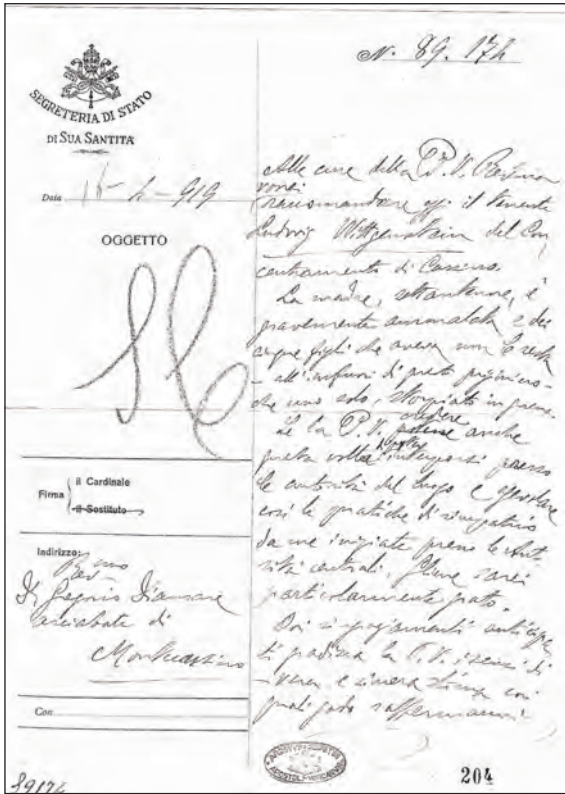 N. 89.174
SEGRETERIA DI STATO
DI SUA SANTITÀ
Data 16-4-919
OGGETTO
Firma
il Cardinale
il Sostituto
Indirizzo:
Rev mo
D. Gregorio Diamare
arciabate di
Montecassino
Con
89174
Alle cure della P. V. Rev.ma
vorrei
raccomandare oggi il tenente
Ludwig Wittgenstein del Con
centramento di Cassino.
La madre, settantenne, è
gravemente ammalata e dei
cinque figli che aveva non le resta
- all'infuori di questo prigioniero -
che uno solo, storpiato in guerra.
Se la P. V. credere anche
questa volta interporsi presso
le autorità del luogo e agevolare
così le pratiche di rimpatrio
da me iniziate presso le Auto
rità centrali, gliene sarei
particolarmente grato.
Coi ringraziamenti anticipa
ti gradisca la P. V. i sensi di
vera e sincera stima con
quali godo raffermarmi
204